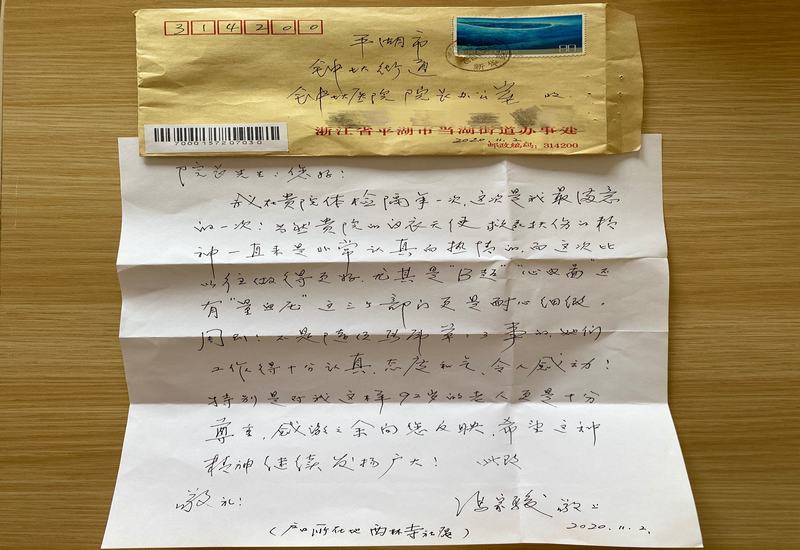 314200
平湖市
钟埭街道
钟埭医院 院长办公室 收
浙江省平湖市当湖街道办事处
2020.11.2
邮政编码：314200
80
院长先生：您好！
我在贵院体检隔年一次，这次是我最满意
的一次！当然贵院的白衣天使 救死扶伤的精
神一直来是非常认真的热情的，而这次比
以往做得更好，尤其是"B超""心电图"还
有"量血压"这三个部门更是耐心细致，
周到！不是
工作得十分认真，态度和气，令人感动！
特别是对我这样92岁的老人更是十分
尊重，感激之余向您反映，希望这种
精神继续发扬广大！ 此致
敬礼！
敬上
2020.11.2.
(户口所在地 西林寺社区)